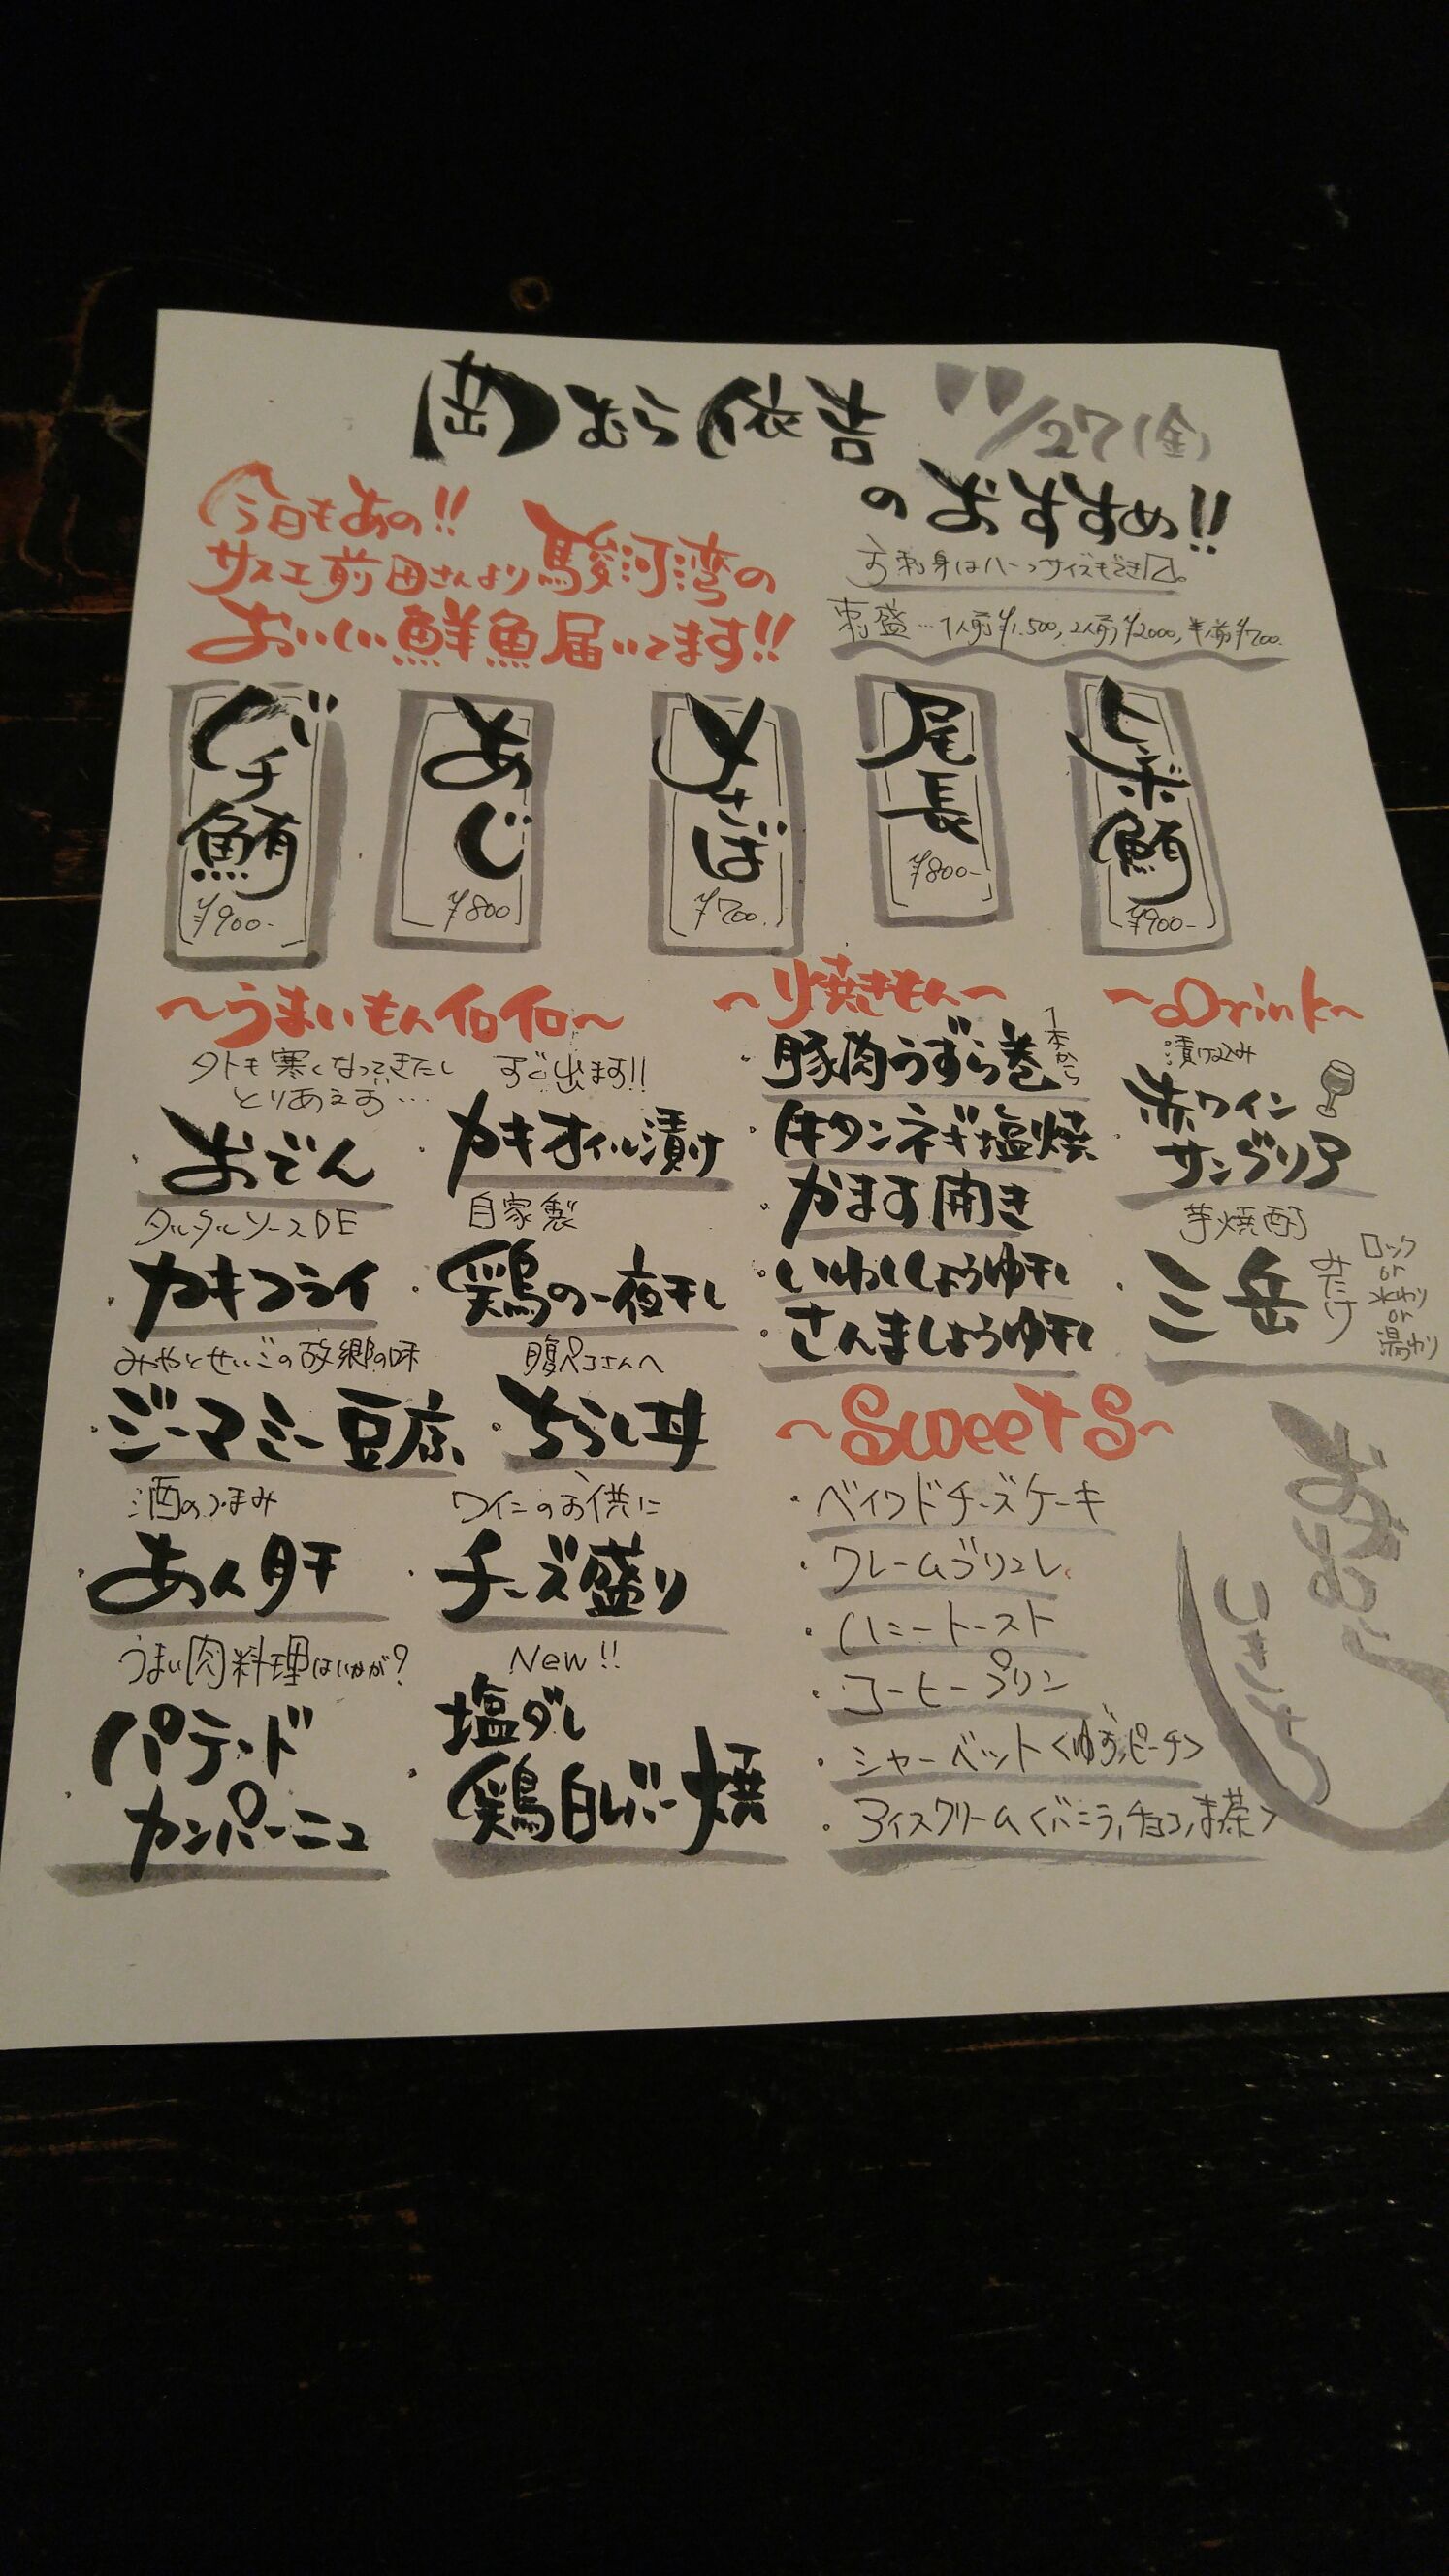 岡むら依吉
11/27(金)
のおすすめ!!
今日もあの!!
サスエ前田さんより駿河湾の
おいしい鮮魚届いてます!!
お刺身はハーフサイズもできます。
刺盛…1人前¥1,500, 2人前¥2000, 半人前¥700.
バチ鮪
¥900-
あじ
¥800
〆さば
¥700.
尾長
¥800-
ヒレボ鮪
¥900-
〜うまいもんイロイロ〜
外も寒くなってきたし
とりあえず…
・おでん
タルタルソースDE
・カキフライ
みやとせいごの故郷の味
・ジーマミー豆腐
酒のつまみ
・あん肝
うまい肉料理はいかが?
・パテ・ド
カンパーニュ
すぐ出ます!!
・カキオイル漬け
自家製
・鶏の一夜干し
腹ペコさんへ
・ちらし丼
ワインのお供に
・チーズ盛り
New!!
・塩ダレ
鶏白レバー焼
〜焼きもん〜
・豚肉うずら巻
1本から
・牛タンネギ塩焼
・かます開き
・いわししょうゆ干し
・さんましょうゆ干し
〜Drink〜
漬け込み
・赤ワイン
サングリア
芋焼酎
・三岳
みたけ
ロック
or
水わり
or
湯わり
〜Sweets〜
・ベイクドチーズケーキ
・クレームブリュレ
・ハニートースト
・コーヒープリン
・シャーベット<ゆず,ピーチ>
・アイスクリーム<バニラ,チョコ,ま茶>